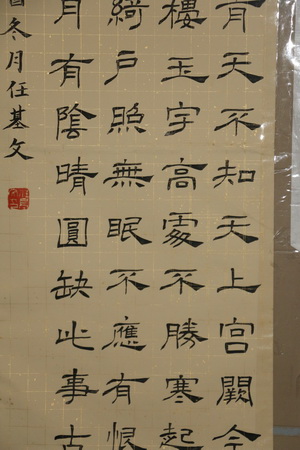 青天不知天上宮闕今
樓玉宇高處不勝寒起
綺戶照無眠不應有恨
月有陰晴圓缺此事古
酉冬月任基文